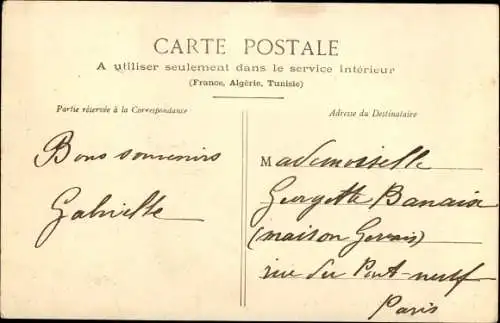 CARTE POSTALE
A utiliser seulement dans le service intérieur
(France, Algérie, Tunisie)
Partie réservée à la Correspondance
Bons souvenirs
Gabrielle
Adresse du Destinataire
Mademoiselle
Georgette
(maison Gervais)
rue du Pont-neuf
Paris